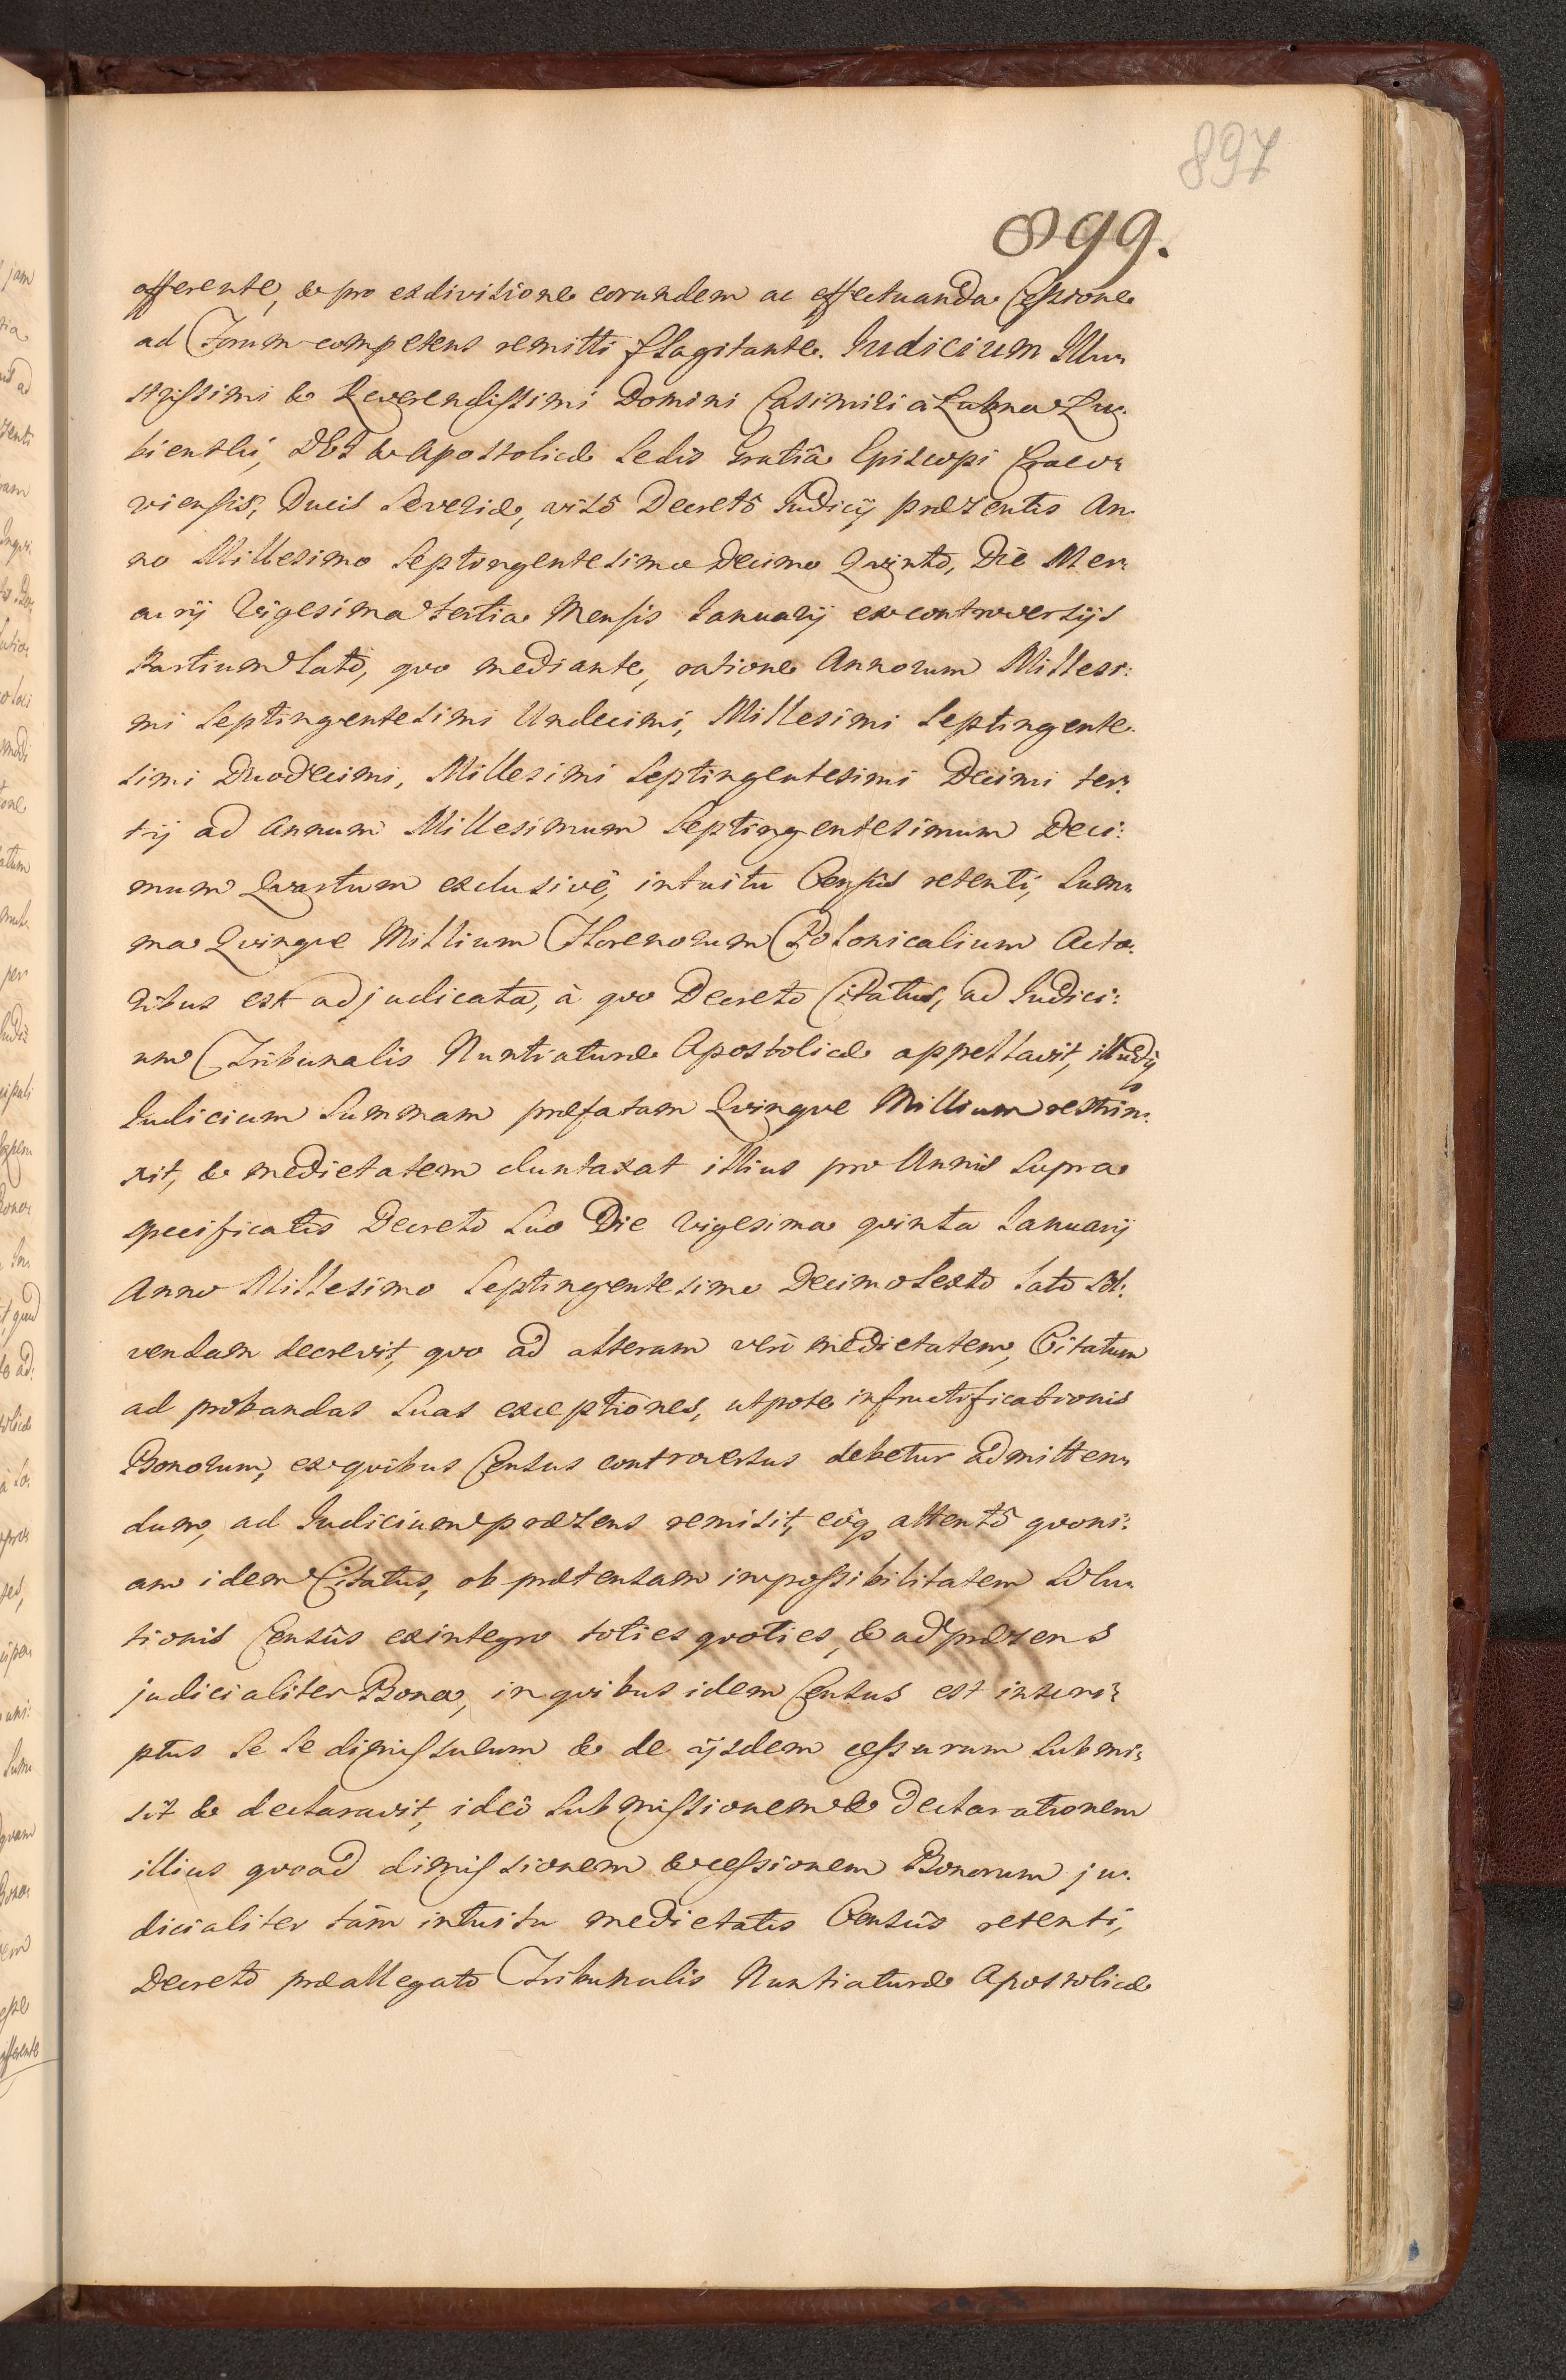 897
899.
offerente, & pro exdivisione eorundem ac effectuanda Cessione
ad Forum competens remitti flagitante. Judicium Illu:
strissimi & Reverendissimi Domini Casimiri à Lubna Łu:
bienski, DEI & Apostolicæ Sedis Gratiâ Episcopi Craco:
viensis, Ducis Severiæ, visô Decretô Judicij præsentis An:
no Millesimo Septingentesimo Decimo Qvinto, Die Mer:
curij Vigesima tertia Mensis Januarij ex controversijs
Partium lato, qvo mediante, ratione Annorum Millesi:
mi Septingentesimi Undecimi, Millesimi Septingente:
simi Duodecimi, Millesimi Septingentesimi Decimi ter:
tij ad Annum Millesimum Septingentesimum Deci:
mum Qvartum exclusivè, intuitu Censûs retenti, Sum:
ma Qvinqve Millium Florenorum Polonicalium Acto:
ribus est adjudicata, à qvo Decreto Citatus, ad Judici:
um Tribunalis Nuntiaturæ Apostolicæ appellavit, illudq
Judicium Summam præfatam Qvinqve Millium restrin:
xit, & medietatem duntaxat illius pro Annis supra
specificatis Decreto suo Die Vigesima qvinta Januarij
Anno Millesimo Septingentesimo Decimo Sexto lato sol:
vendam decrevit, qvo ad alteram verò medietatem, Citatum
ad probandas suas exceptiones, utpote infructificationis
Bonorum, ex qvibus Census controversus debetur admitten:
dum, ad Judicium præsens remisit, eôq attentô qvoni:
am idem Citatus, ob prætensam impossibilitatem solu:
tionis Censûs exintegro toties qvoties, & ad præsens
judicialiter Bona, in qvibus idem Census est inscri:
ptus se se dimissurum & de ijsdem cessurum submi:
sit & declaravit, ideò submissionem & declarationem
illius qvoad dimissionem & cessionem Bonorum ju:
dicialiter tàm intuitu medietatis Censûs retenti,
Decreto præallegato Tribunalis Nuntiaturæ Apostolicæ